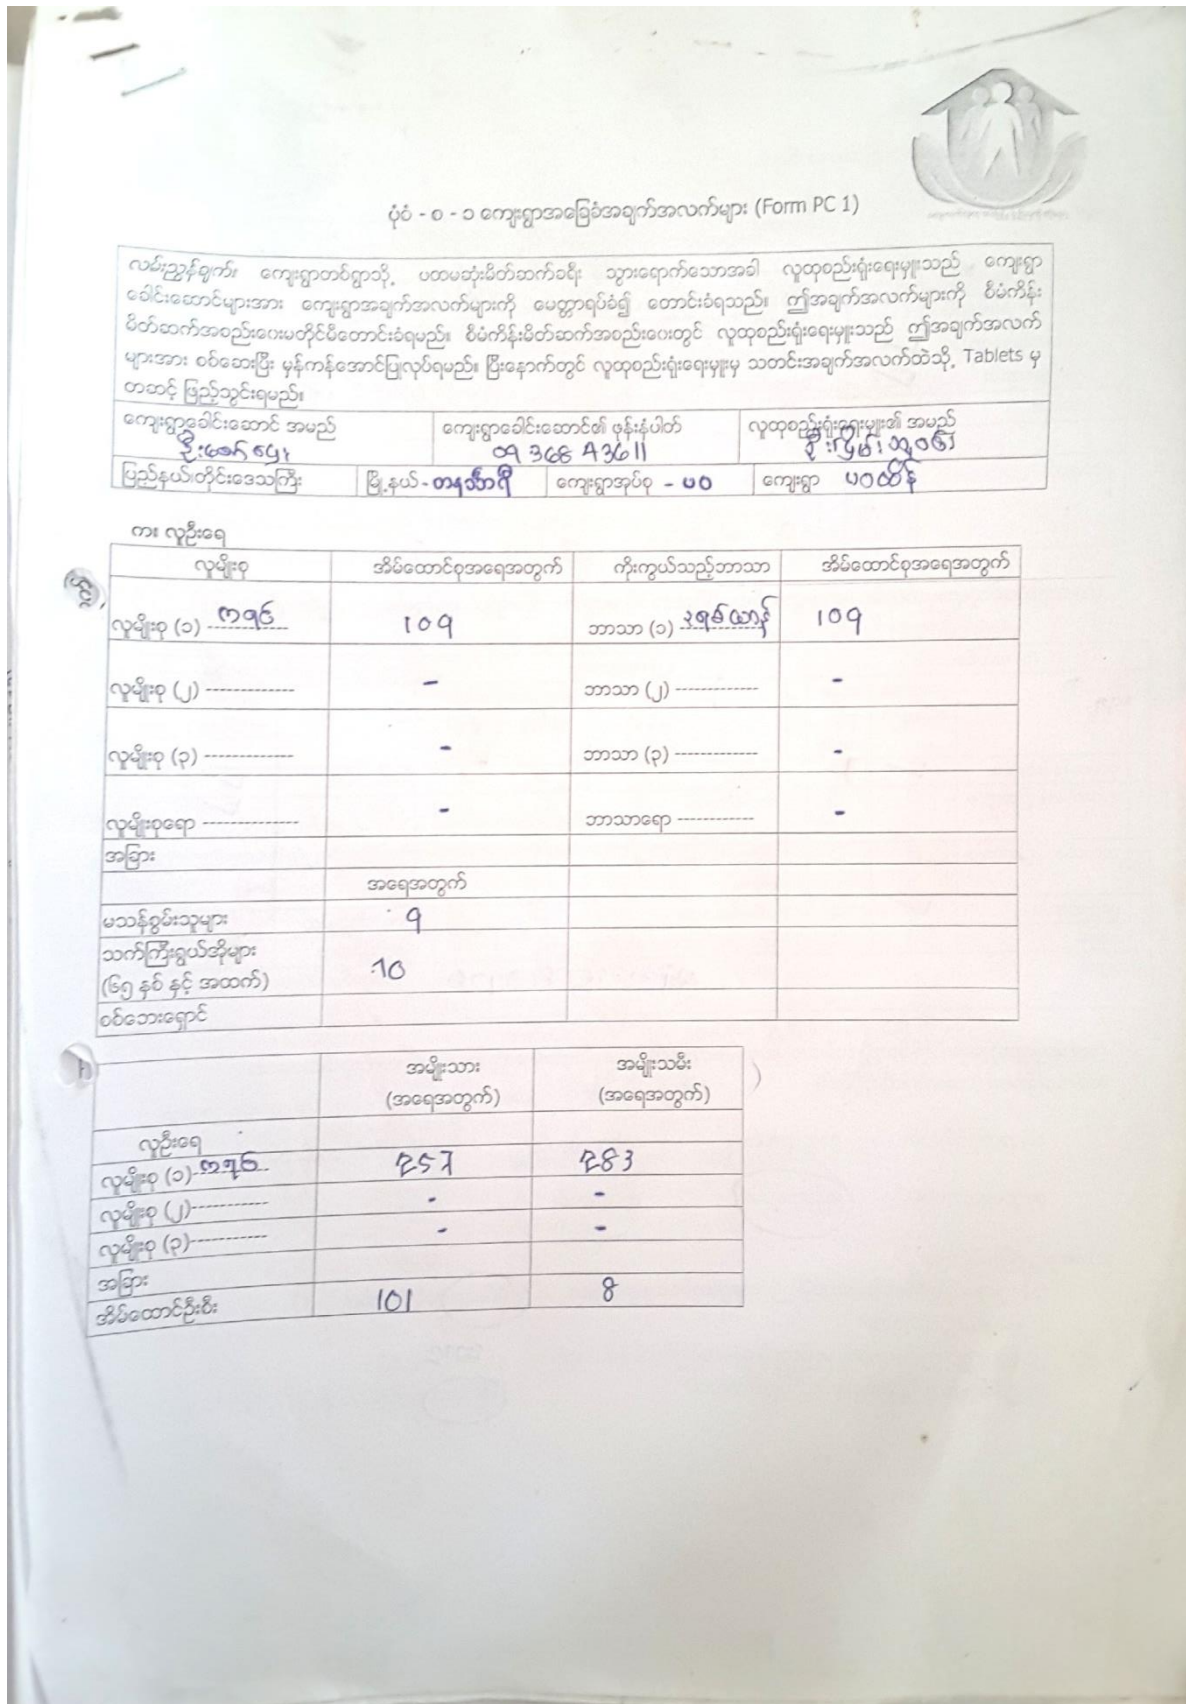 ပုံစံ - စ - ၁ ကျေးရွာအခြေခံအချက်အလက်များ (Form PC 1)
လမ်းညွှန်ချက်။ ကျေးရွာတစ်ရွာသို့ ပထမဆုံးမိတ်ဆက်ခရီး သွားရောက်သောအခါ လူထုစည်းရုံးရေးမှူးသည် ကျေးရွာ
ခေါင်းဆောင်များအား ကျေးရွာအချက်အလက်များကို မေတ္တာရပ်ခံ၍ တောင်းခံရသည်။ ဤအချက်အလက်များကို စီမံကိန်း
မိတ်ဆက်အစည်းဝေးမတိုင်မီတောင်းခံရမည်။ စီမံကိန်းမိတ်ဆက်အစည်းဝေးတွင် လူထုစည်းရုံးရေးမှူးသည် ဤအချက်အလက်
များအား စစ်ဆေးပြီး မှန်ကန်အောင်ပြုလုပ်ရမည်။ ပြီးနောက်တွင် လူထုစည်းရုံးရေးမှူးမှ သတင်းအချက်အလက်ထဲသို့ Tablets မှ
တဆင့် ဖြည့်သွင်းရမည်။
ကျေးရွာခေါင်းဆောင် အမည် ကျေးရွာခေါင်းဆောင်၏ ဖုန်းနံပါတ် လူထုစည်းရုံးရေးမှူး၏ အမည်
09 368 43611
ပြည်နယ်/တိုင်းဒေသကြီး မြို့နယ် - တနင်္သာရီ ကျေးရွာအုပ်စု - ပဝ ကျေးရွာ ပဝထိန်
က။ လူဦးရေ
လူမျိုးစု အိမ်ထောင်စုအရေအတွက် ကိုးကွယ်သည့်ဘာသာ အိမ်ထောင်စုအရေအတွက်
လူမျိုးစု (၁) ကရင် 109 ဘာသာ (၁) ခရစ်ယာန် 109
လူမျိုးစု (၂) ------------- - ဘာသာ (၂) ------------- -
လူမျိုးစု (၃) ------------- - ဘာသာ (၃) ------------- -
လူမျိုးစုရော -------------- - ဘာသာရော ------------ -
အခြား
အရေအတွက်
မသန်စွမ်းသူများ 9
သက်ကြီးရွယ်အိုများ
(၆၅ နှစ် နှင့် အထက်) 10
စစ်ဘေးရှောင်
အမျိုးသား အမျိုးသမီး
(အရေအတွက်) (အရေအတွက်)
လူဦးရေ
လူမျိုးစု (၁) ကရင် 257 283
လူမျိုးစု (၂)----------- - -
လူမျိုးစု (၃)----------- - -
အခြား
အိမ်ထောင်ဦးစီး 101 8